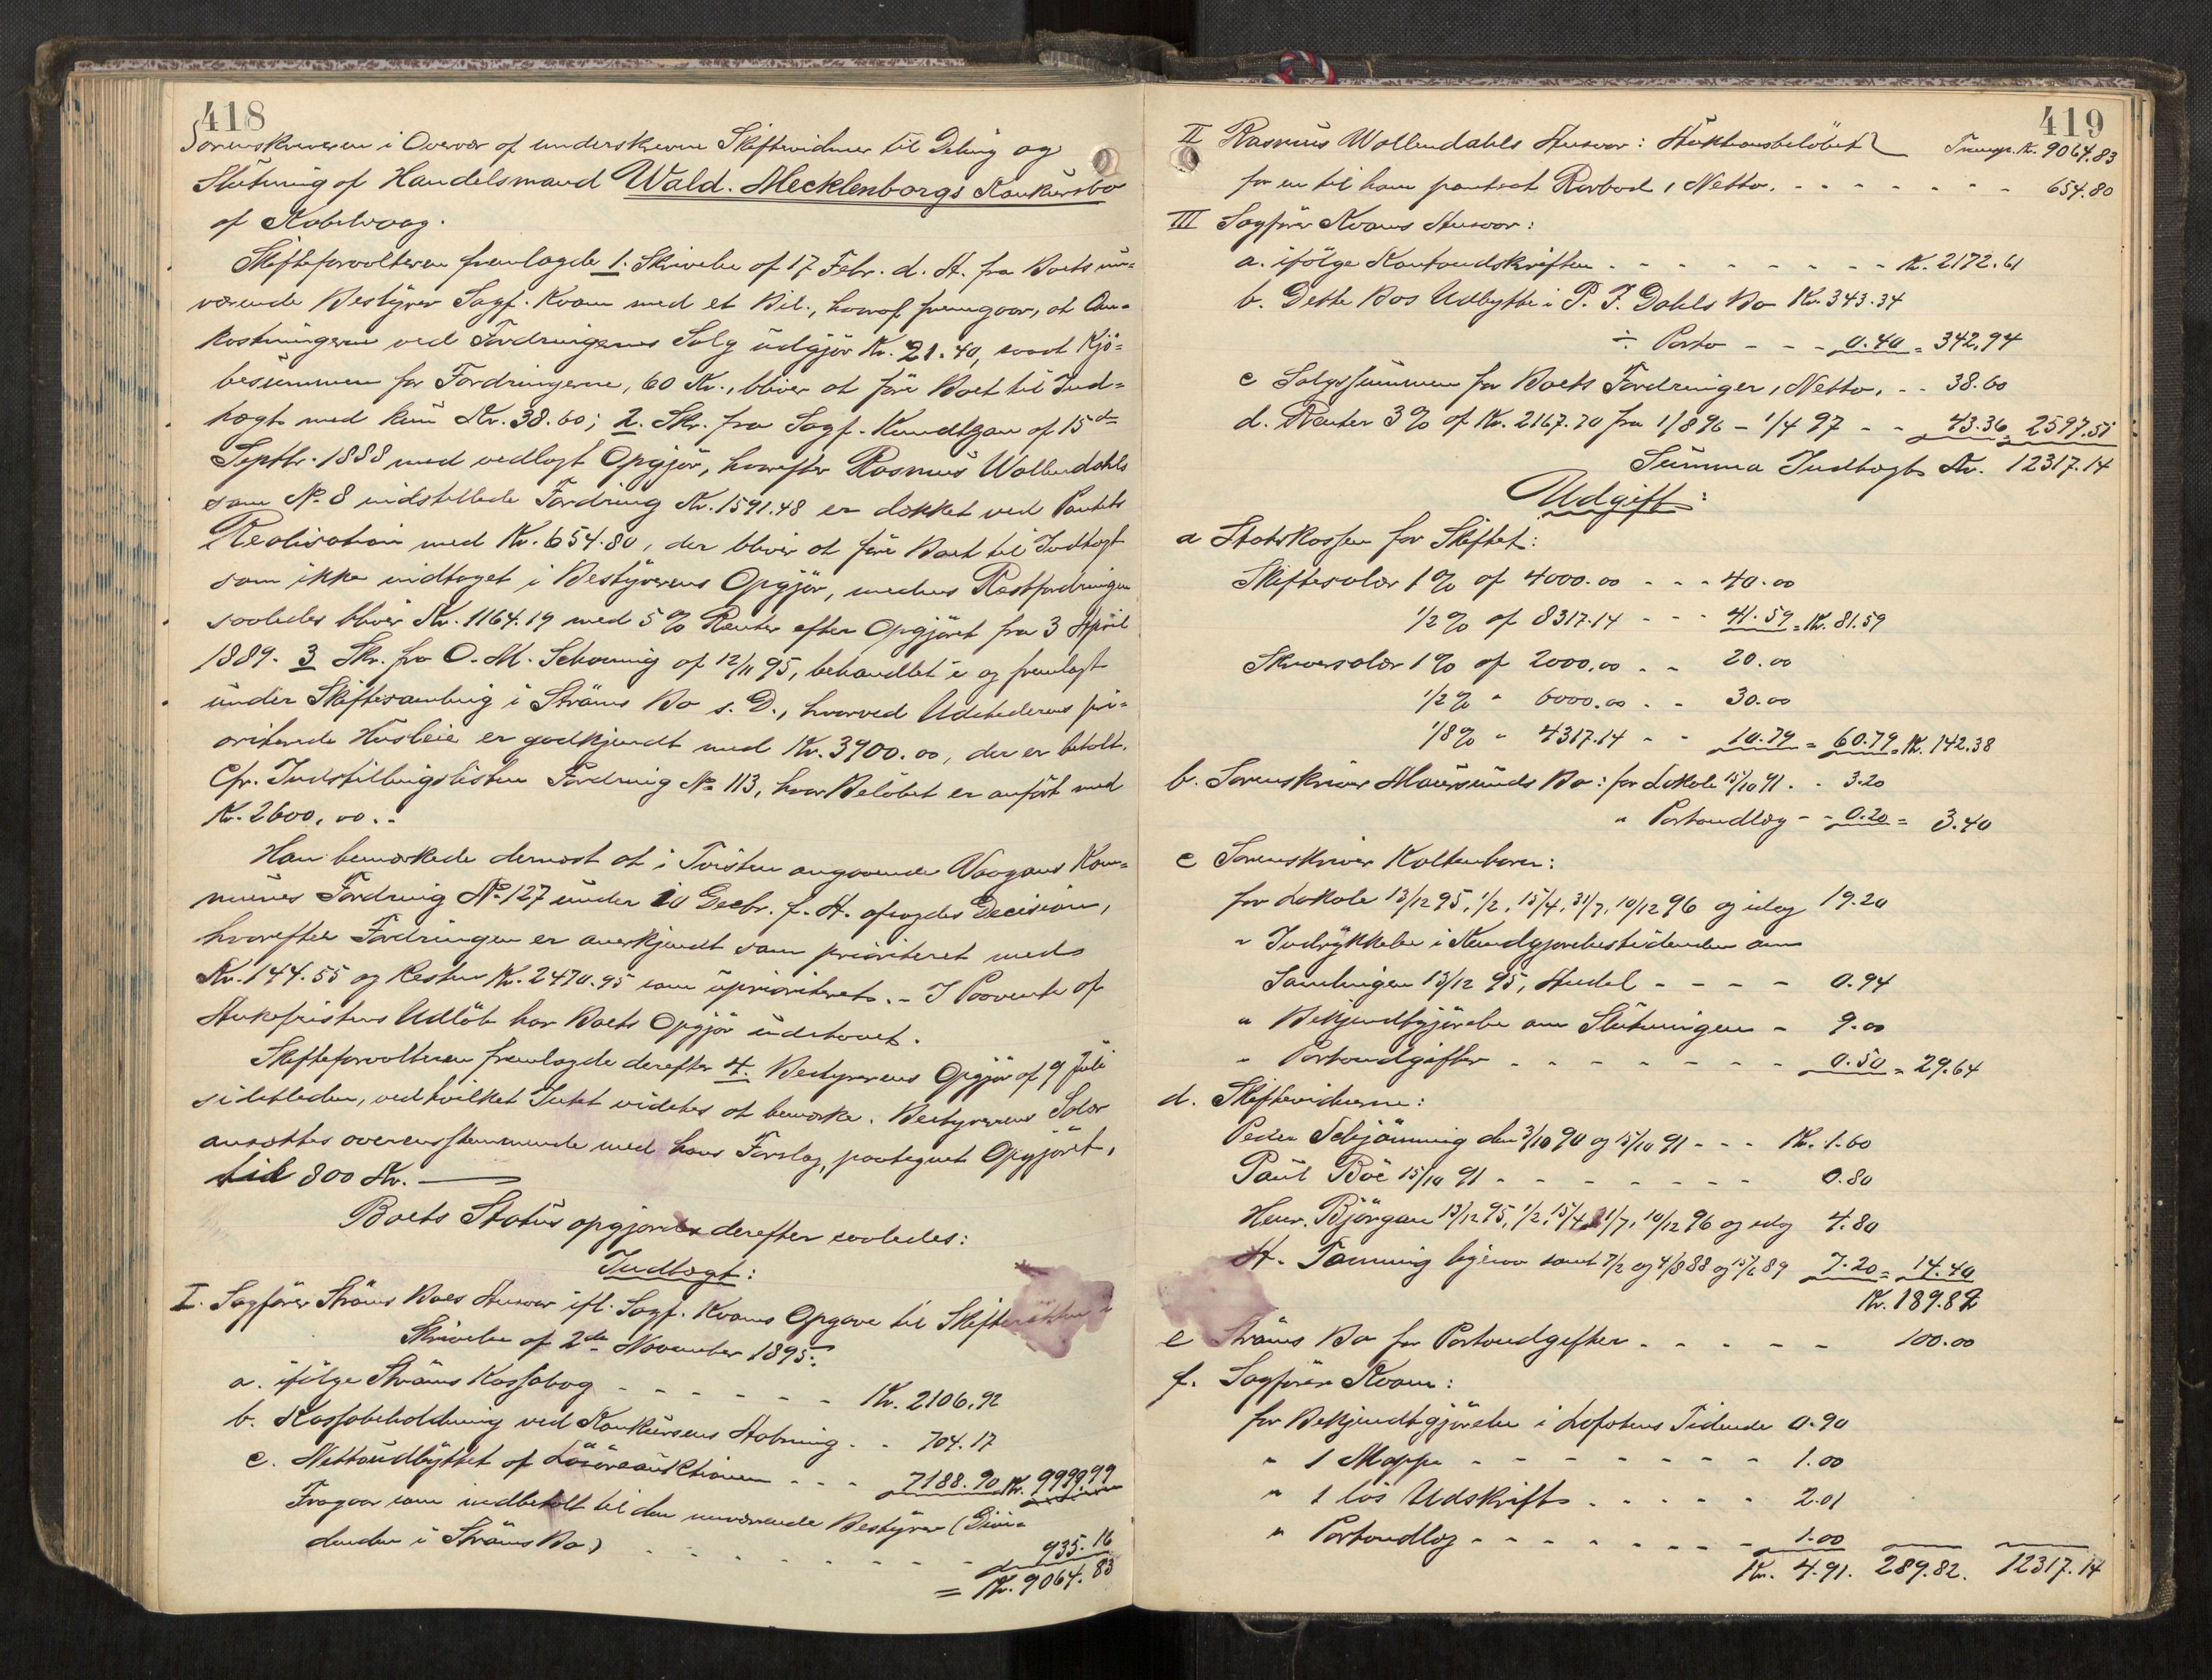 418
Sorenskriveren i Overvær af underskrevne Skiftevidner til Deling og
Slutning af Handelsmand Wald. Mecklenborgs Konkursbo
af Kabelvaag.
Skifteforvalteren fremlagde 1. Skrivelse af 17 Febr. d. A. fra Boets nu=
værende Bestyrer Sagf. Kvam med et Bil., hvoraf fremgaar, at Om=
kostningerne ved Fordringernes Salg udgjør Kr. 21.40, saa at Kjø=
besummen for Fordringerne, 60 Kr., bliver at føre Boet til Ind=
tægt med kun Kr. 38.60; 2. Skr. fra Sagf. Kundtzon af 15de
Septbr. 1888 med vedlagt Opgjør, hvorefter Rasmus Wollendahls
som No 8 indstillede Fordring Kr. 1591.48 er dækket ved Pantets
Realisation med Kr. 654.80, der bliver at føre Boet til Indtægt
som ikke indtaget i Bestyrerens Opgjør, medens Restfordringen
saaledes bliver Kr. 1164.19 med 5 % Renter efter Opgjøret fra 3 April
1889. 3 Skr. fra O. M. Schønnig af 12/11 95, behandlet i og fremlagt
under Skiftesamling i Strøms Bo s. D., hvorved Udstederens pri=
oriterede Husleie er godkjendt med Kr. 3900.00, der er betalt.
Cfr. Indstillingslisten Fordring No 113, hvor Beløbet er anført med
Kr. 2600.00..
Han bemærkede dernæst at i Tvisten angaaende Vaagans Kom=
munes Fordring No 127 under 10 Decbr. f. A. afsagdes Decision,
hvorefter Fordringen er anerkjendt som prioriteret med
Kr. 144.55 og Resten Kr. 2470.95 som uprioriteret. - I Paavente af
Ankefristens Udløb har Boets Opgjør udstaaet.
Skifteforvalteren fremlagde derefter 4. Bestyrerens Opgjør af 9 Juli
sidstleden, ved hvilket Intet vidstes at bemærke. Bestyrerens Salær
ansættes overensstemmende med hans Forslag, paategnet Opgjøret,
til 800 Kr.
Boets Status opgjordes derefter saaledes:
Indtægt:
I. Sagfører Strøms Boes Ansvar ifl. Sagf. Kvams Opgave til Skifteretten i
Skrivelse af 2de November 1895:
a. ifølge Strøms Kassabog - - - - - - Kr. 2106.92
b. Kassabeholdning ved Konkursens Aabning - - 704.17
c. Nettoudbyttet af Løsøreauktionen - - - 7188.90 Kr. 9999.99
Fragaar som indbetalt til den nuværende Bestyrer (Divi=
denden i Strøms Bo) - - - - - - - - 935.16
= Kr. 9064.83
419
II Rasmus Wollendahls Ansvar: Auktionsbeløbet Transp. Kr. 9064.83
for en til ham pantsat Rorbod, Netto. - - - - - - - 654.80
III Sagfører Kvams Ansvar:
a. ifølge Kontoudskriften - - - - - - - - - Kr. 2172.61
b. Dette Bos Udbytte i P. F. Dahls Bo Kr. 343.34
÷ Porto - - - 0.40 = 342.94
c Salgssummen for Boets Fordringer, Netto, - - 38.60
d. Renter 3 % af Kr. 2167.70 fra 1/8 96 - 1/4 97 - - 43.36 = 2597.51
Summa Indtægt Kr. 12317.14
Udgift:
a Statskassen for Skiftet:
Skiftesalær 1 % af 4000.00 - - - 40.00
1/2 % af 8317.14 - - - 41.59 = Kr. 81.59
Skriversalær 1 % af 2000.00 - - 20.00
1/2 % " 6000.00 - - 30.00
1/8 % " 4317.14 - - 10.79 = 60.79 Kr. 142.38
b. Sorenskriver Maursunds Bo: for Lokale 15/10 91 - - 3.20
" Portoudlæg - - 0.20 = 3.40
c Sorenskriver Koltenborn:
for Lokale 13/12 95, 1/2, 15/4, 31/7, 10/12 96 og idag 19.20
" Indrykkelse i Kundgjørelsestidenden om
Samlingen 13/12 95, Andel - - - - 0.94
" Bekjendtgjørelse om Slutningen - 9.00
" Portoudgifter - - - - - - - - 0.50 = 29.64
d. Skiftevidnerne:
Peder Schjønning den 3/10 90 og 15/10 91 - - - Kr. 1.60
Paul Bøe 15/10 91 - - - - - - - - 0.80
Henr. Bjørgan 13/12 95, 1/2, 15/4, 31/7, 10/12 96 og idag 4.80
A. Tønning ligesaa samt 7/2 og 4/8 88 og 15/6 89 7.20 = 14.40
Kr. 189.82
e Strøms Bo for Portoudgifter - - - - - 100.00
f. Sagfører Kvam:
for Bekjendtgjørelse i Lofotens Tidende 0.90
" 1 Mappe - - - - - - - - 1.00
" 1 løs Udskrift - - - - - 2.01
" Portoudlæg - - - - - - - - 1.00
Kr. 4.91. 289.82. 12317.14